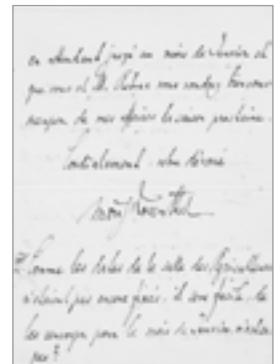 en attendant jusqu'au mois de Janvier et
que vous et M. voudrez bien vous
occuper de mes affaires la saison prochaine.
Cordialement votre dévoué
Rosenthal
Comme les dates de la salle des Agriculteurs
n'étaient pas encore fixées, il sera facile de
les pour le mois de Janvier, n'est-ce
pas ?